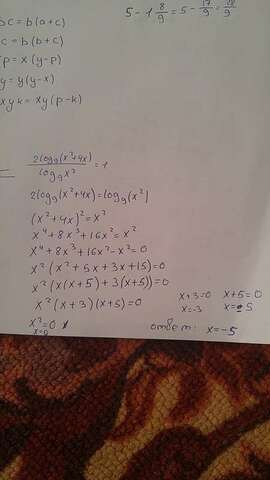 bc = b(a+c)
c = b(b+c)
p = x(y-p)
y = y(y-x)
xyk = xy(p-k)
5-1 8/9 = 5 - 17/9 = 28/9
2log₉(x²+4x) / log₉x² = 1
2log₉(x²+4x) = log₉(x²)
(x²+4x)² = x²
x⁴+8x³+16x² = x²
x⁴+8x³+16x²-x² = 0
x²(x²+5x+3x+15) = 0
x²(x(x+5)+3(x+5)) = 0
x²(x+3)(x+5) = 0
x² = 0
x = 0
x+3=0
x=-3
x+5=0
x=-5
ответ: x=-5